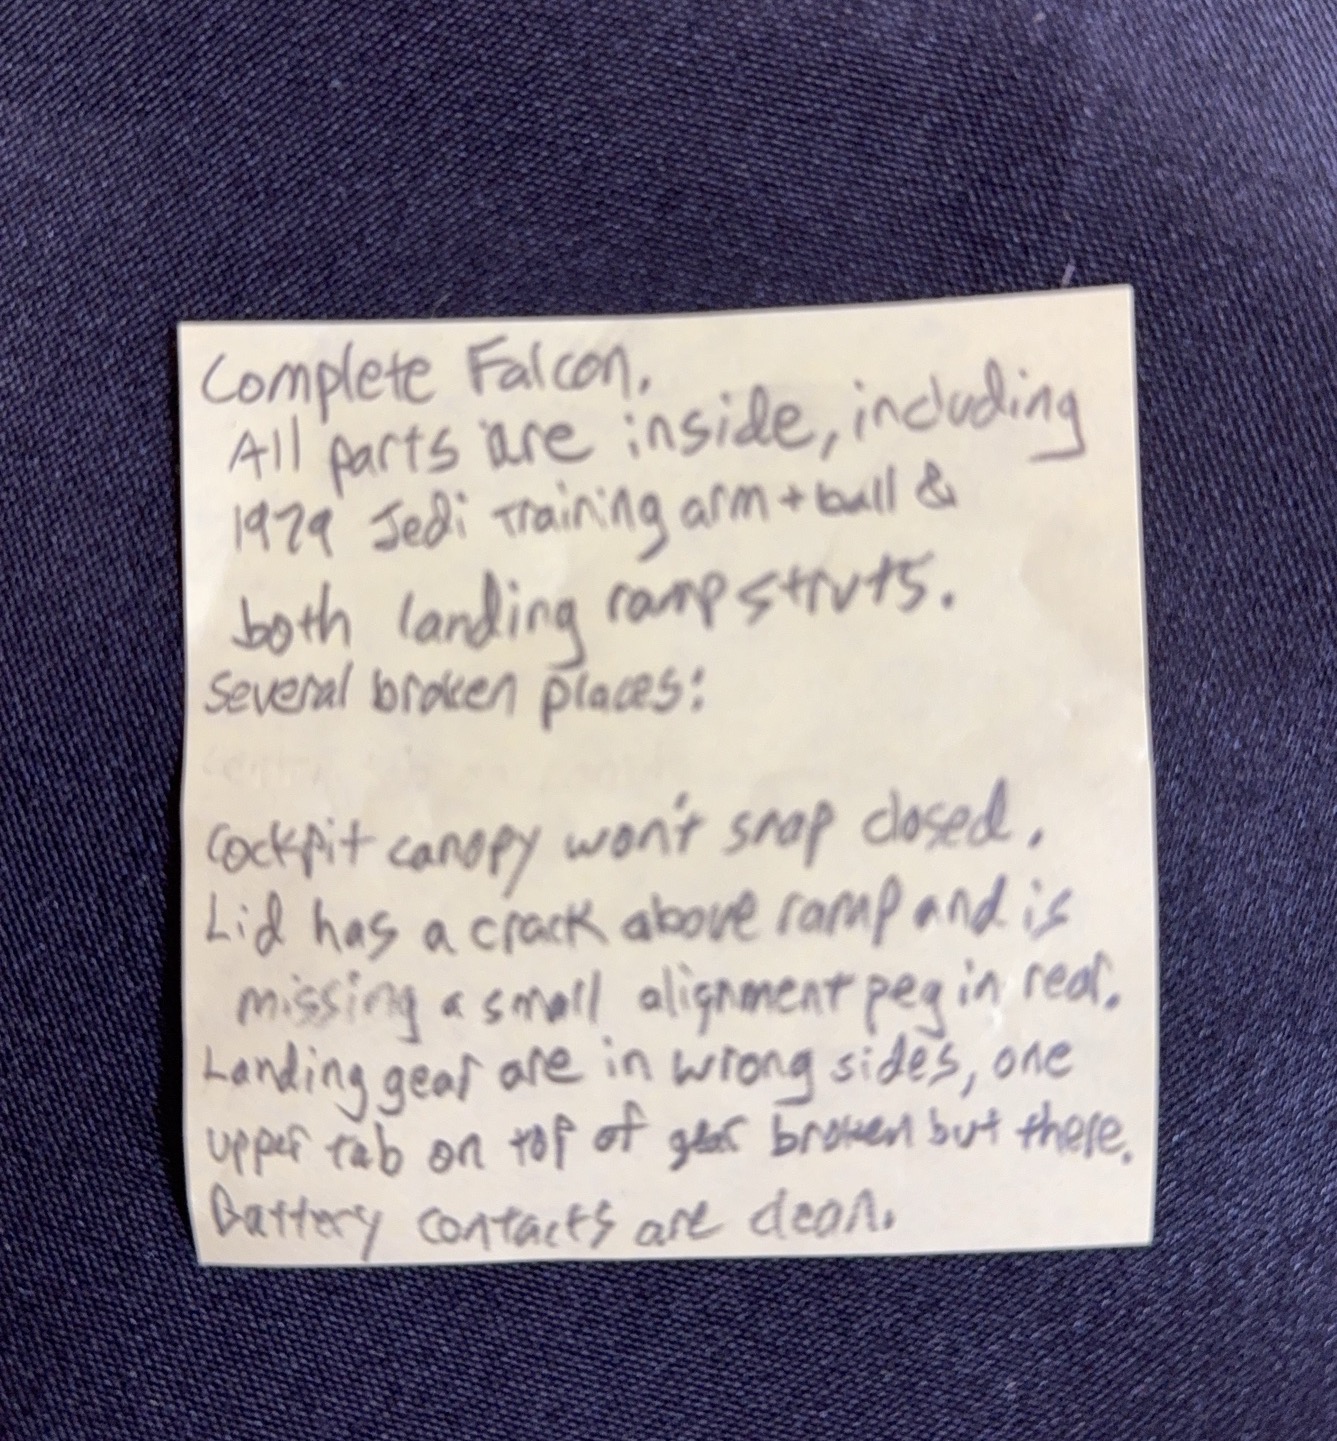 Complete Falcon.
All parts are inside, including
1979 Jedi Training arm + ball &
both landing ramp struts.
Several broken places:
Cockpit canopy won't snap closed.
Lid has a crack above ramp and is
missing a small alignment peg in rear.
Landing gear are in wrong sides, one
upper tab on top of gear broken but there.
Battery contacts are clean.